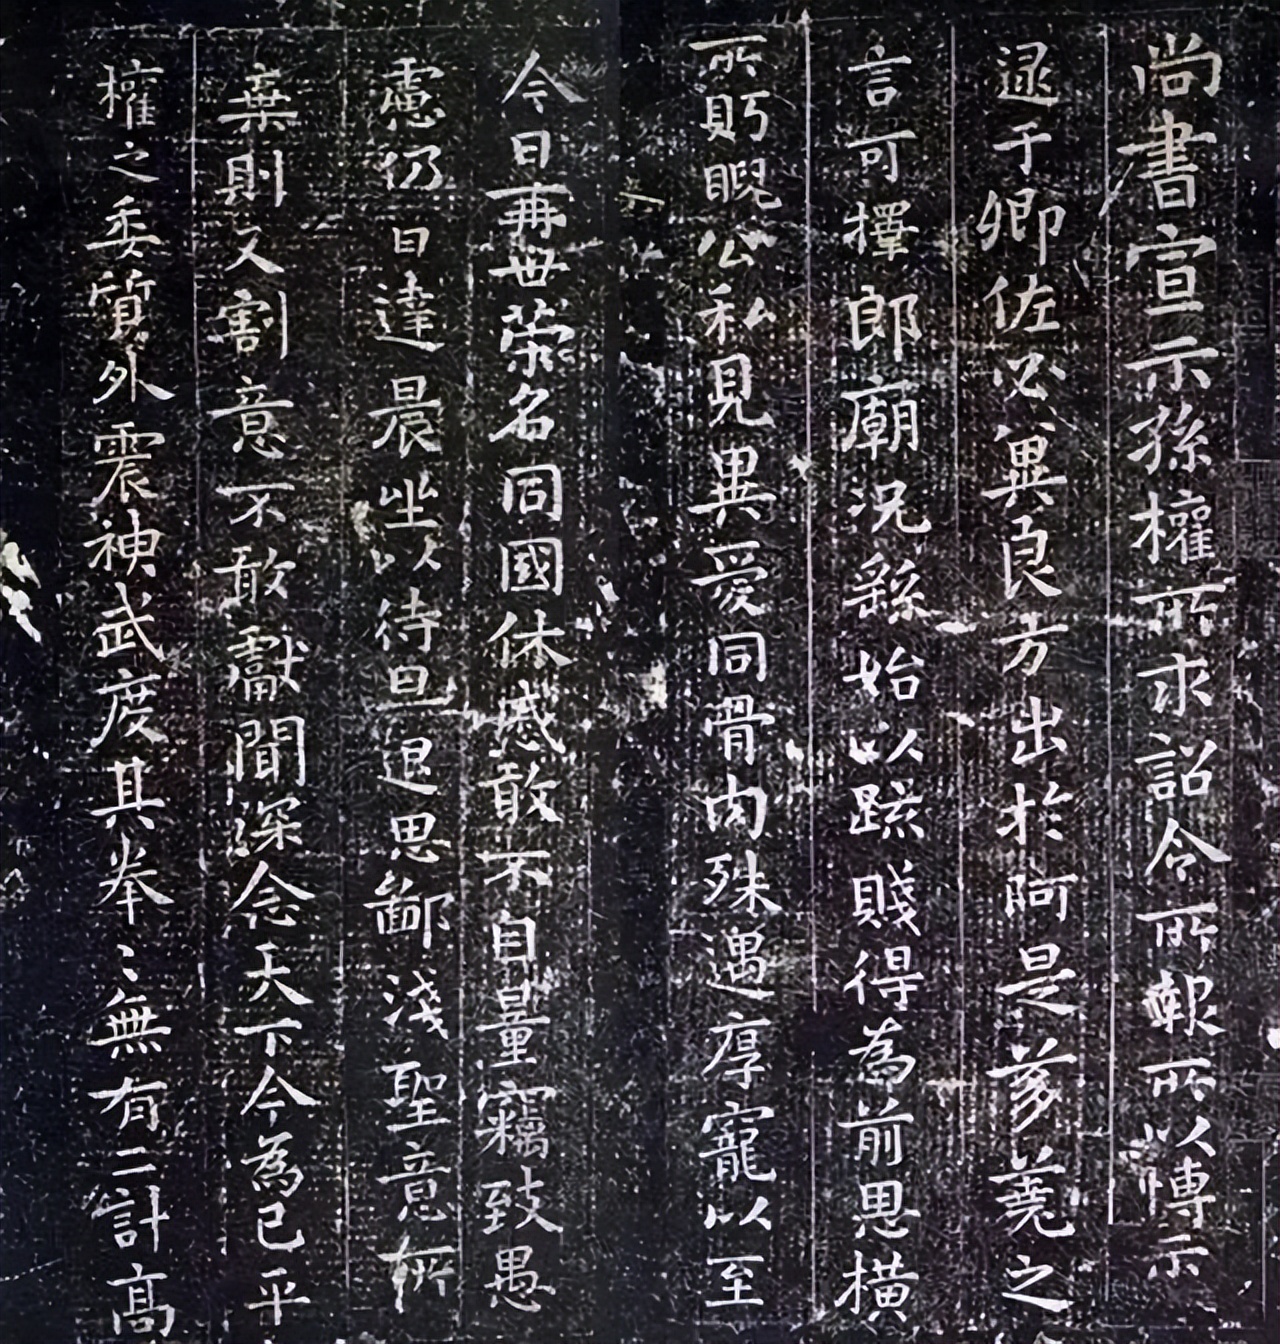 尚書宣示孫權所求詔令所報所以博示
逮于卿佐必冀良方出於阿是芻蕘之
言可擇郎廟況繇始以疏賤得為前恩橫
所貺睨公私見異愛同骨肉殊遇厚寵以至
今日再世榮名同國休慼敢不自量竊致愚
慮仍日達晨坐以待旦退思鄙淺聖意所
棄則又割意不敢獻聞深念天下今為已平
權之委質外震神武度其拳〻無有二計高